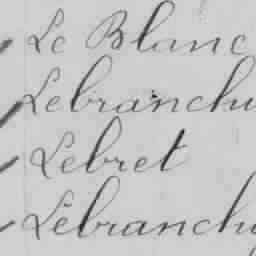 Le Blanc
Lebranchu
Lebret
Lebranchu